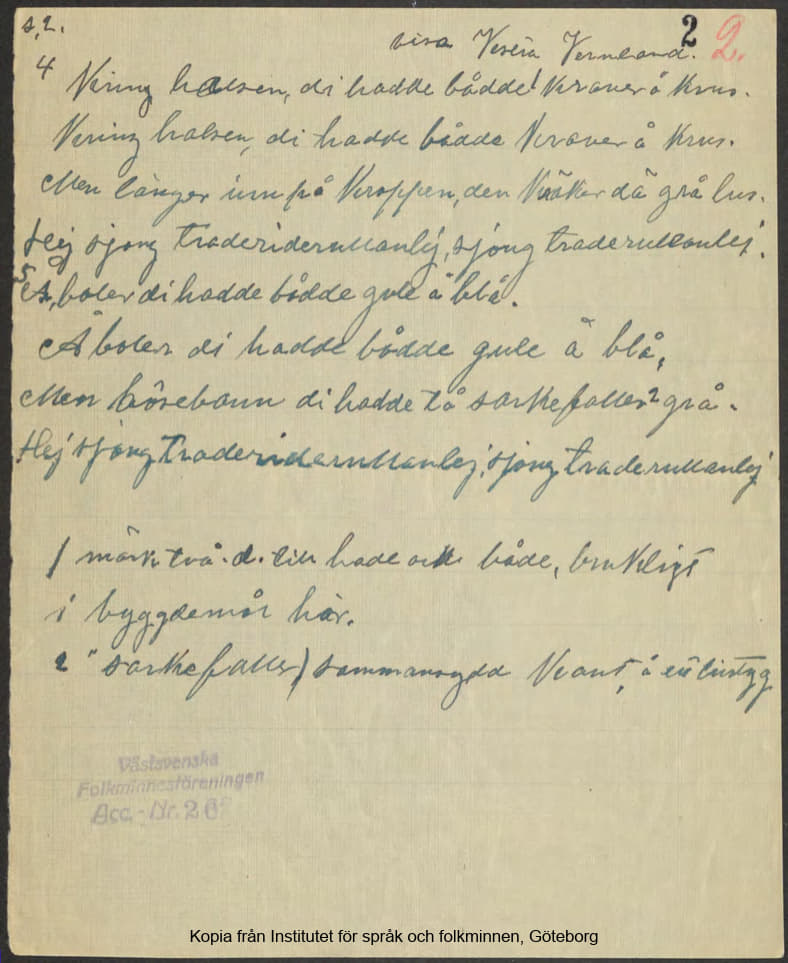 s, 2.
visa Vestra Vermland. 2 2.
4 Kring halsen, di hadde bådde¹ kraver å krus.
Kring halsen, di hadde bådde kraver å krus.
Men länger inn på kroppen, den kräker dä grå lus.
Hej sjong traderiderullanlej, sjong traderullanlej.
5 Å, boler di hadde bådde gule å blå.
Å boler di hadde bådde gule å blå,
Men di hadde tå sarkefaller² grå.
Hej sjong traderiderullanlej, sjong traderullanlej
1 märk två .d. till hade ock både, brukligt
i bygdemål här.
2 " sarkefaller) sammansydd kant, å
Västsvenska
Folkminnesföreningen
Acc.-Nr. 26
Kopia från Institutet för språk och folkminnen, Göteborg